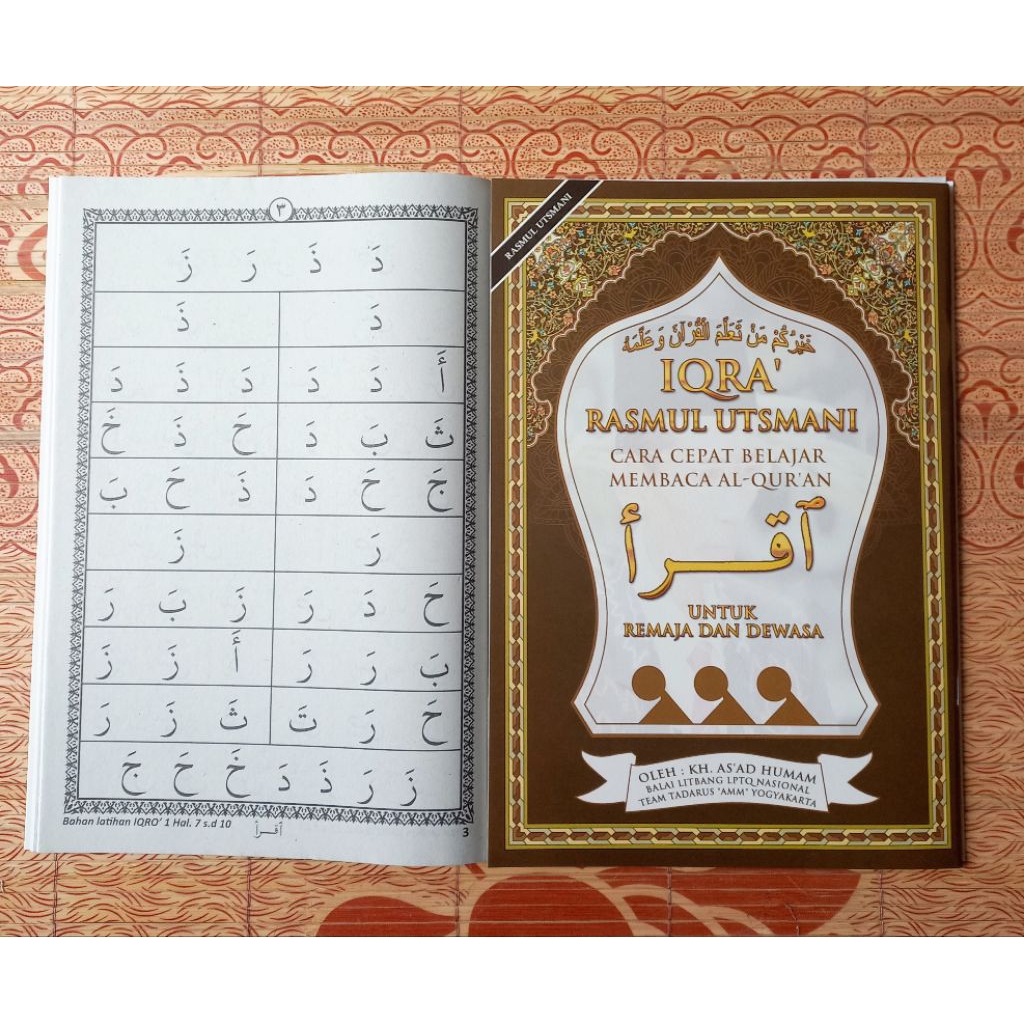 ٣
دَ ذَ رَ زَ
دَ ذَ
أَ دَ دَ دَ ذَ دَ
ثَ بَ دَ حَ ذَ خَ
جَ حَ دَ ذَ حَ بَ
رَ زَ
حَ دَ رَ زَ بَ رَ
بَ رَ رَ أَ زَ زَ
حَ رَ تَ ثَ زَ رَ
زَ رَ ذَ دَ خَ حَ جَ
Bahan latihan IQRO' 1 Hal. 7 s.d 10
أقرأ
3
RASMUL UTSMANI
خَيْرُكُمْ مَنْ تَعَلَّمَ الْقُرْآنَ وَعَلَّمَهُ
IQRA'
RASMUL UTSMANI
CARA CEPAT BELAJAR
MEMBACA AL-QUR'AN
ٱقرأ
UNTUK
REMAJA DAN DEWASA
OLEH : KH. AS'AD HUMAM
BALAI LITBANG LPTQ NASIONAL
TEAM TADARUS "AMM" YOGYAKARTA